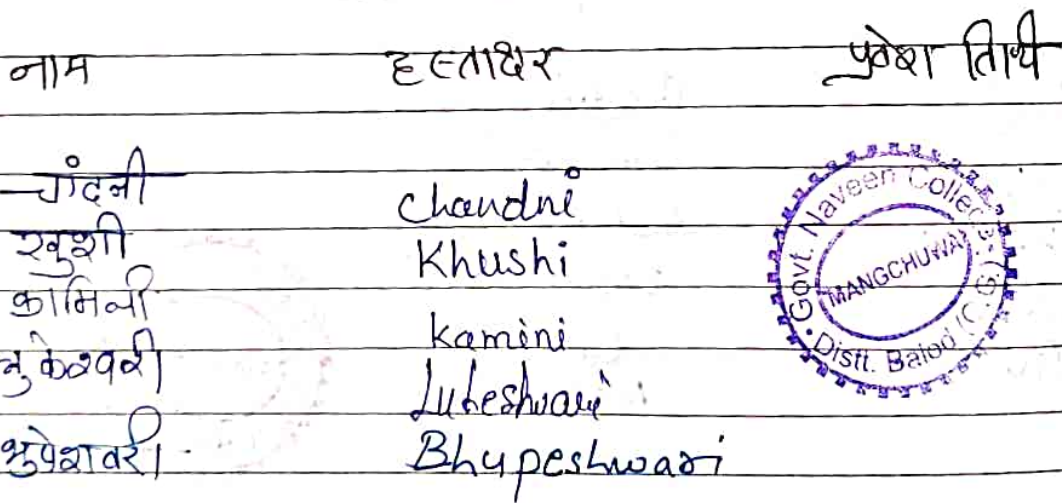 नाम हस्ताक्षर प्रवेश तिथी
चांदनी Chandni
खुशी Khushi
कामिनी Kamini
लुकेश्वरी Lukeshwari
भुपेशवरी Bhupeshwari
Govt. Naveen College
MANGCHUWA
Distt. Balod (C.G.)